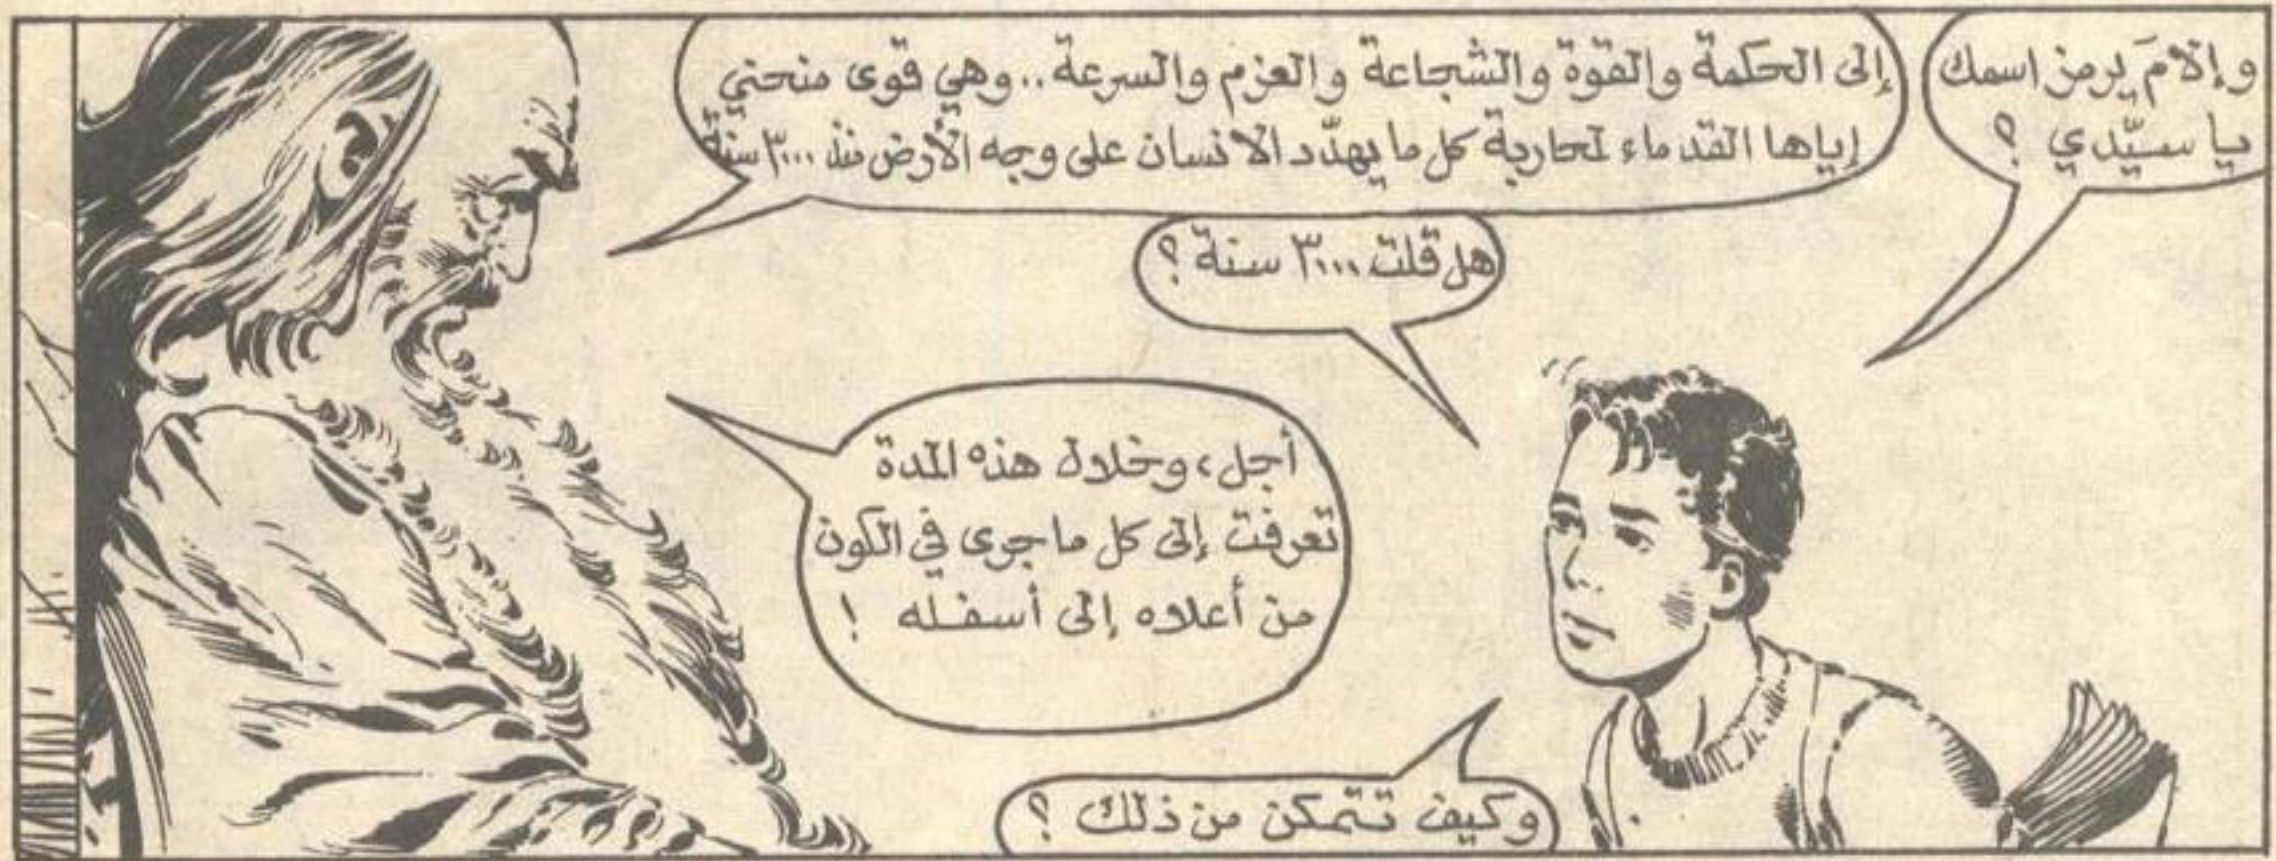 وإلامَ يرمز اسمك
يا سيّدي ؟
إلى الحكمة والقوة والشجاعة والعزم والسرعة .. وهي قوى منحني
إياها القدماء لمحاربة كل ما يهدّد الانسان على وجه الأرض منذ ٣٠٠٠ سنة
هل قلت ٣٠٠٠ سنة ؟
أجل، وخلال هذه المدة
تعرفت إلى كل ما جرى في الكون
من أعلاه إلى أسفله !
وكيف تتمكن من ذلك ؟